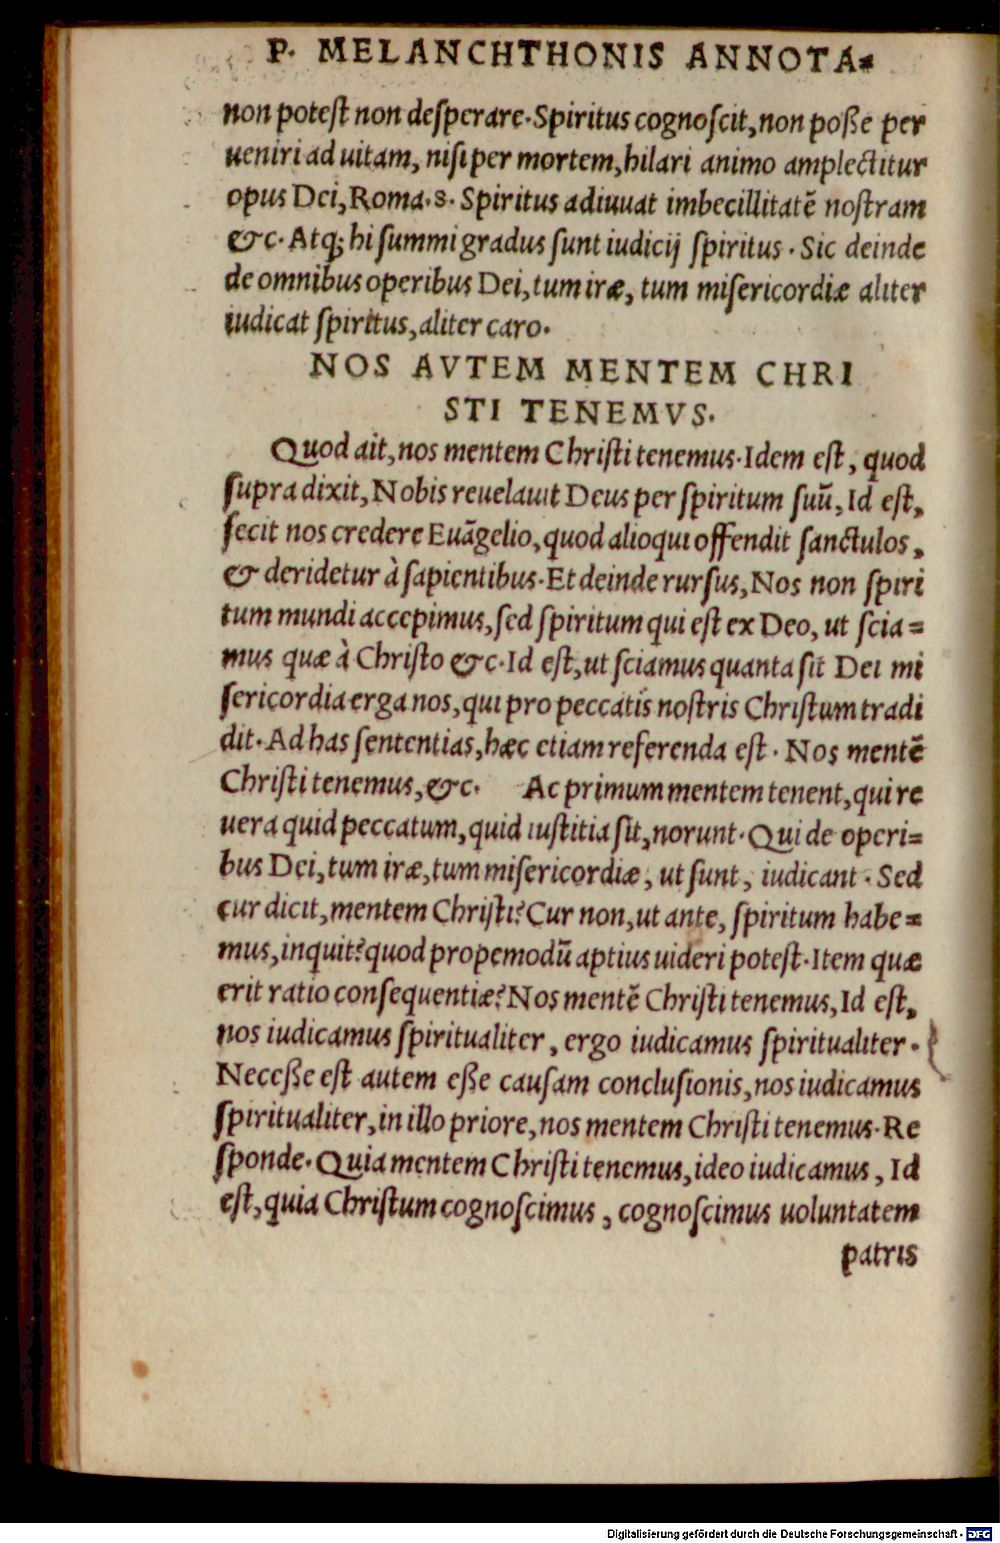 P. MELANCHTHONIS ANNOTA⸗
non poteſt non deſperare. Spiritus cognoſcit, non poſſe per
ueniri ad uitam, niſi per mortem, hilari animo amplectitur
opus Dei, Roma. 8. Spiritus adiuuat imbecillitatē noſtram
&c. Atq; hi ſummi gradus ſunt iudicij ſpiritus. Sic deinde
de omnibus operibus Dei, tum iræ, tum miſericordiæ aliter
iudicat ſpiritus, aliter caro.
NOS AVTEM MENTEM CHRI
STI TENEMVS.
Quod ait, nos mentem Chriſti tenemus. Idem eſt, quod
ſupra dixit, Nobis reuelauit Deus per ſpiritum ſuū, Id eſt,
fecit nos credere Euāgelio, quod alioqui offendit ſanctulos,
& deridetur à ſapientibus. Et deinde rurſus, Nos non ſpiri
tum mundi accepimus, ſed ſpiritum qui eſt ex Deo, ut ſcia⸗
mus quæ à Chriſto &c. Id eſt, ut ſciamus quanta ſit Dei mi
ſericordia erga nos, qui pro peccatis noſtris Chriſtum tradi
dit. Ad has ſententias, hæc etiam referenda eſt. Nos mentē
Chriſti tenemus, &c. Ac primum mentem tenent, qui re
uera quid peccatum, quid iuſtitia ſit, norunt. Qui de operi⸗
bus Dei, tum iræ, tum miſericordiæ, ut ſunt, iudicant. Sed
cur dicit, mentem Chriſti? Cur non, ut ante, ſpiritum habe⸗
mus, inquit? quod propemodū aptius uideri poteſt. Item quæ
erit ratio conſequentiæ? Nos mentē Chriſti tenemus, Id eſt,
nos iudicamus ſpiritualiter, ergo iudicamus ſpiritualiter.
Neceſſe eſt autem eſſe cauſam concluſionis, nos iudicamus
ſpiritualiter, in illo priore, nos mentem Chriſti tenemus. Re
ſponde. Quia mentem Chriſti tenemus, ideo iudicamus, Id
eſt, quia Chriſtum cognoſcimus, cognoſcimus uoluntatem
patris
Digitalisierung gefördert durch die Deutsche Forschungsgemeinschaft - DFG